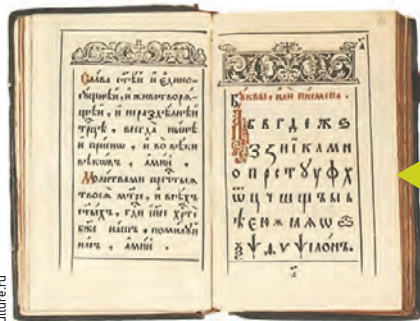 Слава ст҃ѣй и єдино-
сꙋщнѣй, и животворѧ-
щей, и нераздѣлнѣй
трⷪ҇цѣ, всегда нынѣ
и присно, и во вѣки
вѣкѡвъ, аминь.
Молитвами пречтⷭ҇ыѧ
твоеѧ мт҃ре, и всѣхъ
ст҃ыхъ, гдⷭ҇и іи҃се хрⷭ҇те
бж҃е нашъ, помилꙋй
насъ, аминь.
Бꙋквы, или писмена.
А Б В Г Д Є Ж Ѕ
З Ꙁ И І К Л М Н
О П Р С Т Ѹ Ꙋ Ф Х
Ѿ Ц Ч Ш Щ Ъ Ы Ь
Ѣ Є Ю Ѫ Ꙗ Ѧ Ѡ
Ѯ Ѱ Ѳ Ѵ ѵпсілонъ.
ulture.ru